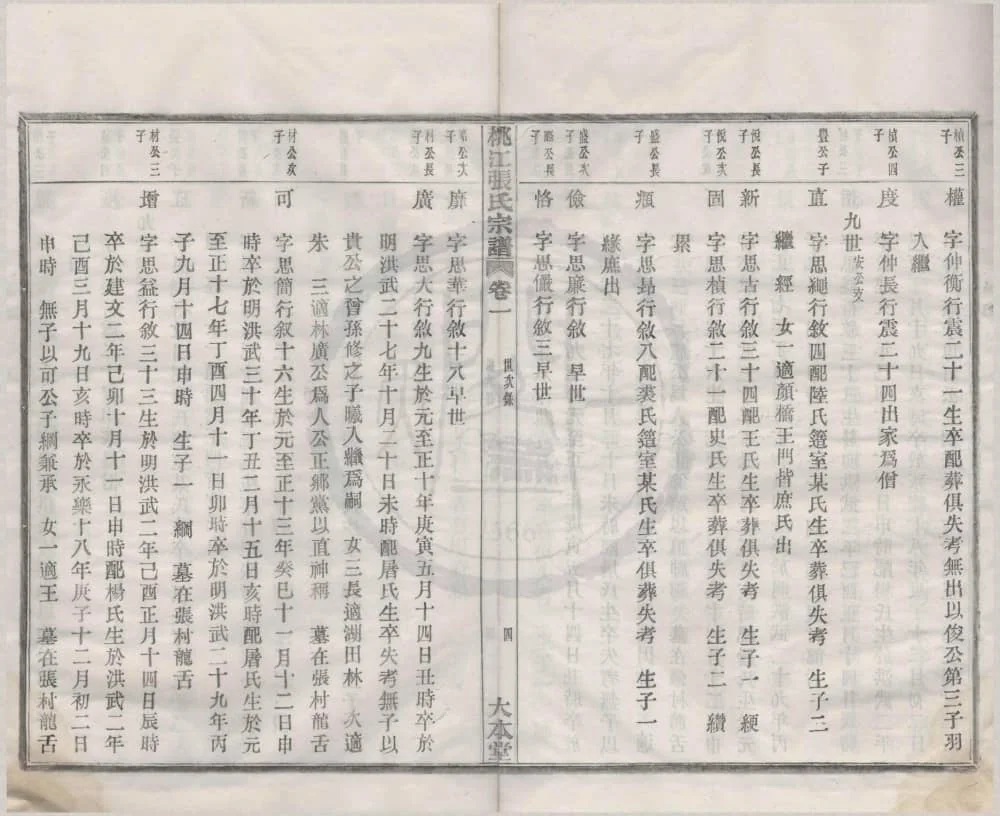 楨公三子
權　字仲衡行震二十一生卒配葬俱失考無出以俊公第三子羽
入繼
楨公四子
度　字仲長行震二十四出家為僧
九世 安公支
豊公子
直　字思繩行敘四配陸氏簉室某氏生卒葬俱失考　生子二
繼　經　女一適顏橋王門皆庶氏出
悅公長子
新　字思古行敘三十四配王氏生卒葬俱失考　生子一　綆
悅公次子
固　字思楨行敘二十一配史氏生卒葬俱失考　生子二　纘
累
盛公長子
頫　字思昻行敘八配裘氏簉室某氏生卒俱葬失考　生子一
緣庶出
盛公次子
儉　字思廉行敘　早世
公長子
恪　字思儼行敘三早世
桃江張氏宗譜　卷一　世次錄　四　大本堂
公次子
廉　字思華行敘十八早世
材公長子
廣　字思大行敘九生於元至正十年庚寅五月十四日丑時卒於
明洪武二十七年十月二十日未時配屠氏生卒失考無子以
貴公之曾孫修之子曦人繼為嗣　女三長適湖田林　次適
朱　三適林廣公為人公正鄉黨以直神稱　墓在張村龍舌
材公次子
可　字思簡行敘十六生於元至正十三年癸巳十一月十二日申
時卒於明洪武三十年丁丑二月十五日亥時配屠氏生於元
至正十七年丁酉四月十一日卯時卒於明洪武二十九年丙
子九月十四日申時　生子一　綱　墓在張村龍舌
材公三子
增　字思益行敘三十三生於明洪武二年己酉正月十四日辰時
卒於建文二年己卯十月十一日申時配楊氏生於洪武二年
己酉三月十九日亥時卒於永樂十八年庚子十二月初二日
申時　無子以可公子綱兼承　女一適王　墓在張村龍舌